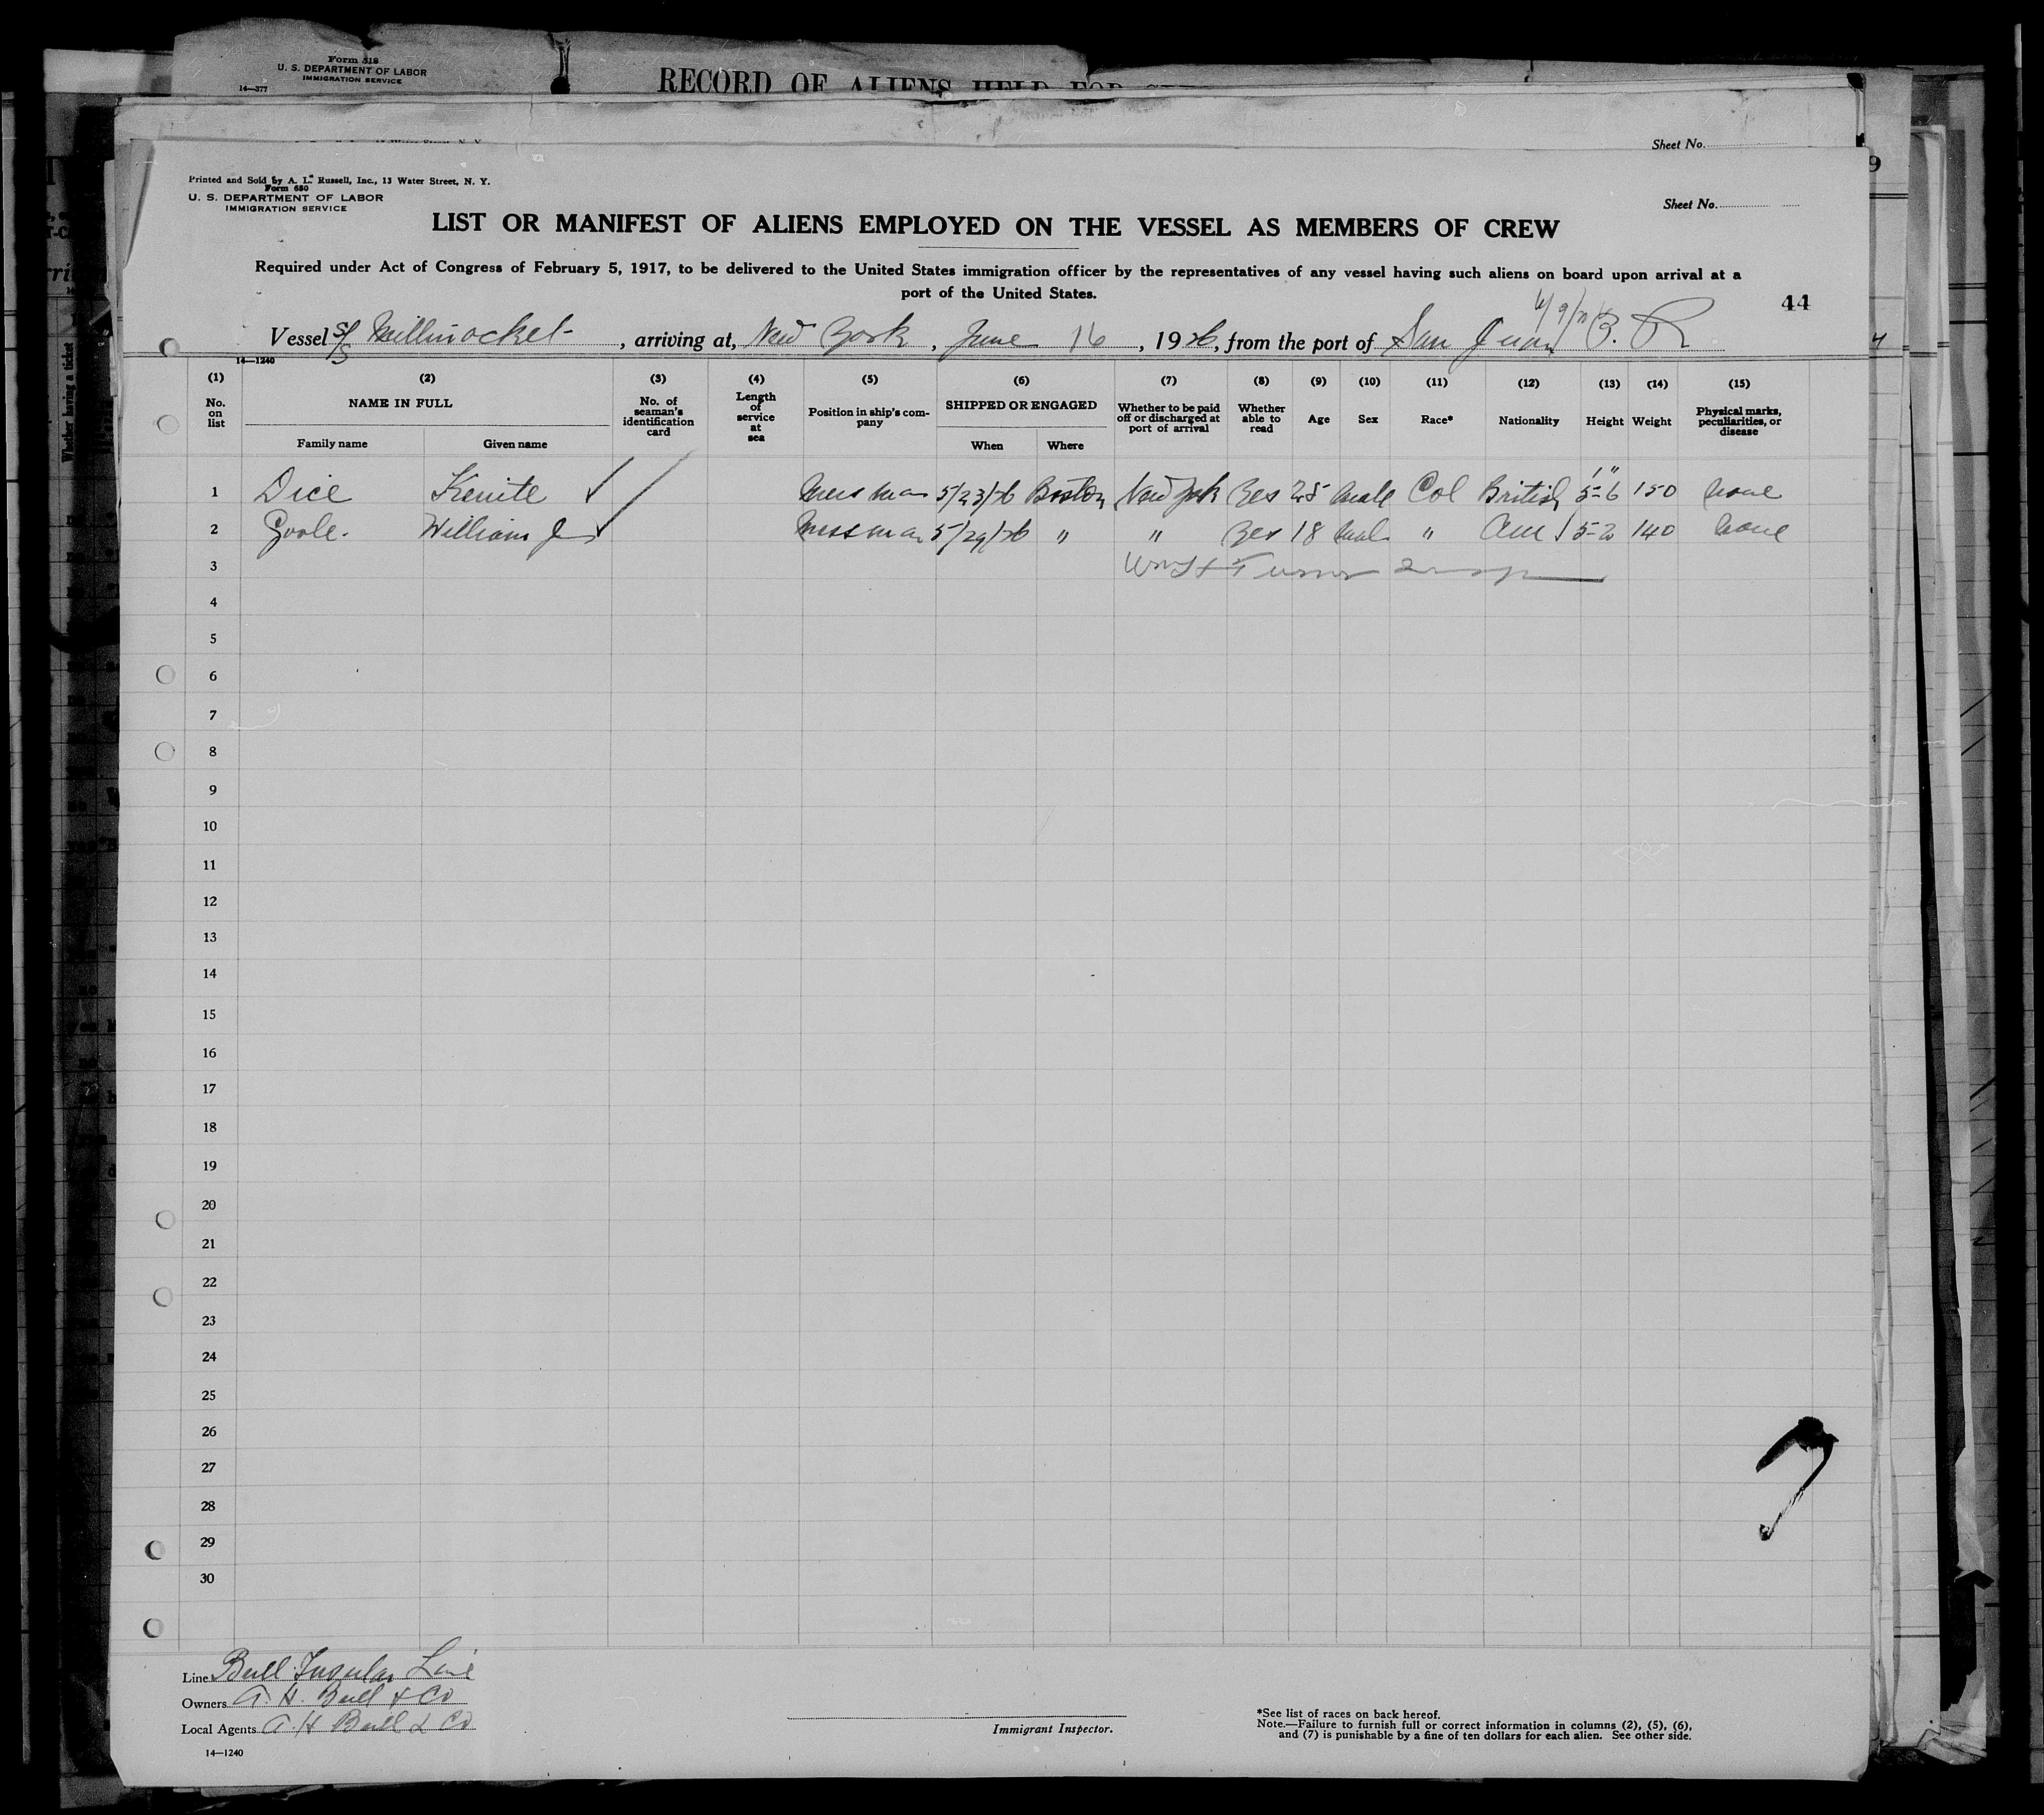 Form 318
U. S. DEPARTMENT OF LABOR
IMMIGRATION SERVICE
14—377
RECORD OF ALIENS HELD FOR
Sheet No.
Printed and Sold by A. L. Russell, Inc., 13 Water Street, N. Y.
Form 680
U. S. DEPARTMENT OF LABOR
IMMIGRATION SERVICE
Sheet No.
LIST OR MANIFEST OF ALIENS EMPLOYED ON THE VESSEL AS MEMBERS OF CREW
Required under Act of Congress of February 5, 1917, to be delivered to the United States immigration officer by the representatives of any vessel having such aliens on board upon arrival at a
port of the United States.
44
Vessel S/S Millinocket, arriving at, New York, June 16, 1926, from the port of San Juan P. R
14—1240
(1) (2) (3) (4) (5) (6) (7) (8) (9) (10) (11) (12) (13) (14) (15)
No. on list NAME IN FULL Family name Given name No. of seaman's identification card Length of service at sea Position in ship's company SHIPPED OR ENGAGED When Where Whether to be paid off or discharged at port of arrival Whether able to read Age Sex Race* Nationality Height Weight Physical marks, peculiarities, or disease
1 Dice Messman 5/23/26 Boston New York Yes 25 male Col British 5-6 150 none
2 William J Messman 5/29/26 " " Yes 18 male " Am 5-2 140 none
3
4
5
6
7
8
9
10
11
12
13
14
15
16
17
18
19
20
21
22
23
24
25
26
27
28
29
30
Line Bull Insular Line
Owners A. H. Bull & Co
Local Agents A. H Bull & Co
14—1240
Immigrant Inspector.
*See list of races on back hereof.
Note.—Failure to furnish full or correct information in columns (2), (5), (6),
and (7) is punishable by a fine of ten dollars for each alien. See other side.